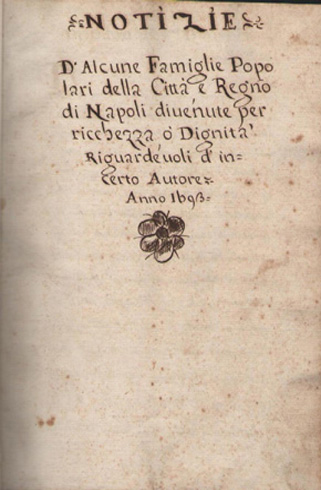 NOTIZIE
D'Alcune Famiglie Popo
lari della Città e Regno
di Napoli divenute per
ricchezza ò Dignità
Riguardévoli d'in=
certo Autore
Anno 1693=